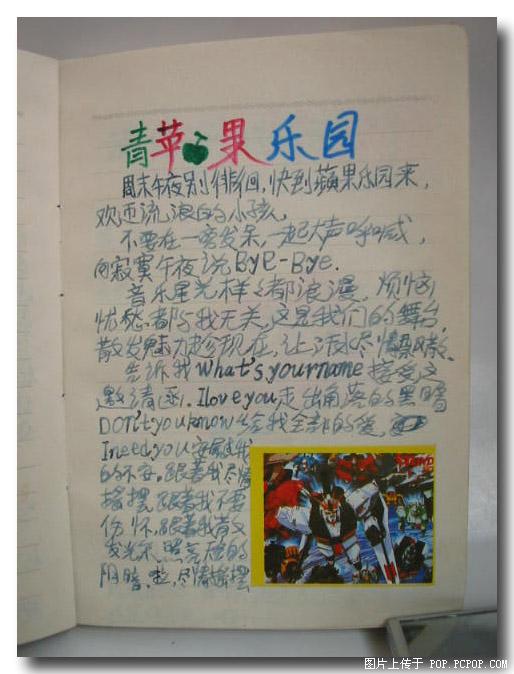 青苹果乐园
周末午夜别徘徊,快到蘋果乐园来,
欢迎流浪的小孩,
不要在一旁发呆,一起大声呼喊,
向寂寞午夜说Bye-Bye.
音乐星光样样都浪漫,烦恼
忧愁都与我无关,这是我们的舞台,
散发魅力趁现在,让汗水尽情
告诉我What's your name 接受这
邀请函.I love you走出角落的黑暗
DON't you know给我全部的爱,
I need you 安抚我
的不安.跟着我尽情
摇摆.跟着我不要
伤怀,跟着我散
发光采.照亮
阴暗.啦,尽情摇摆
图片上传于 POP.PCPOP.COM